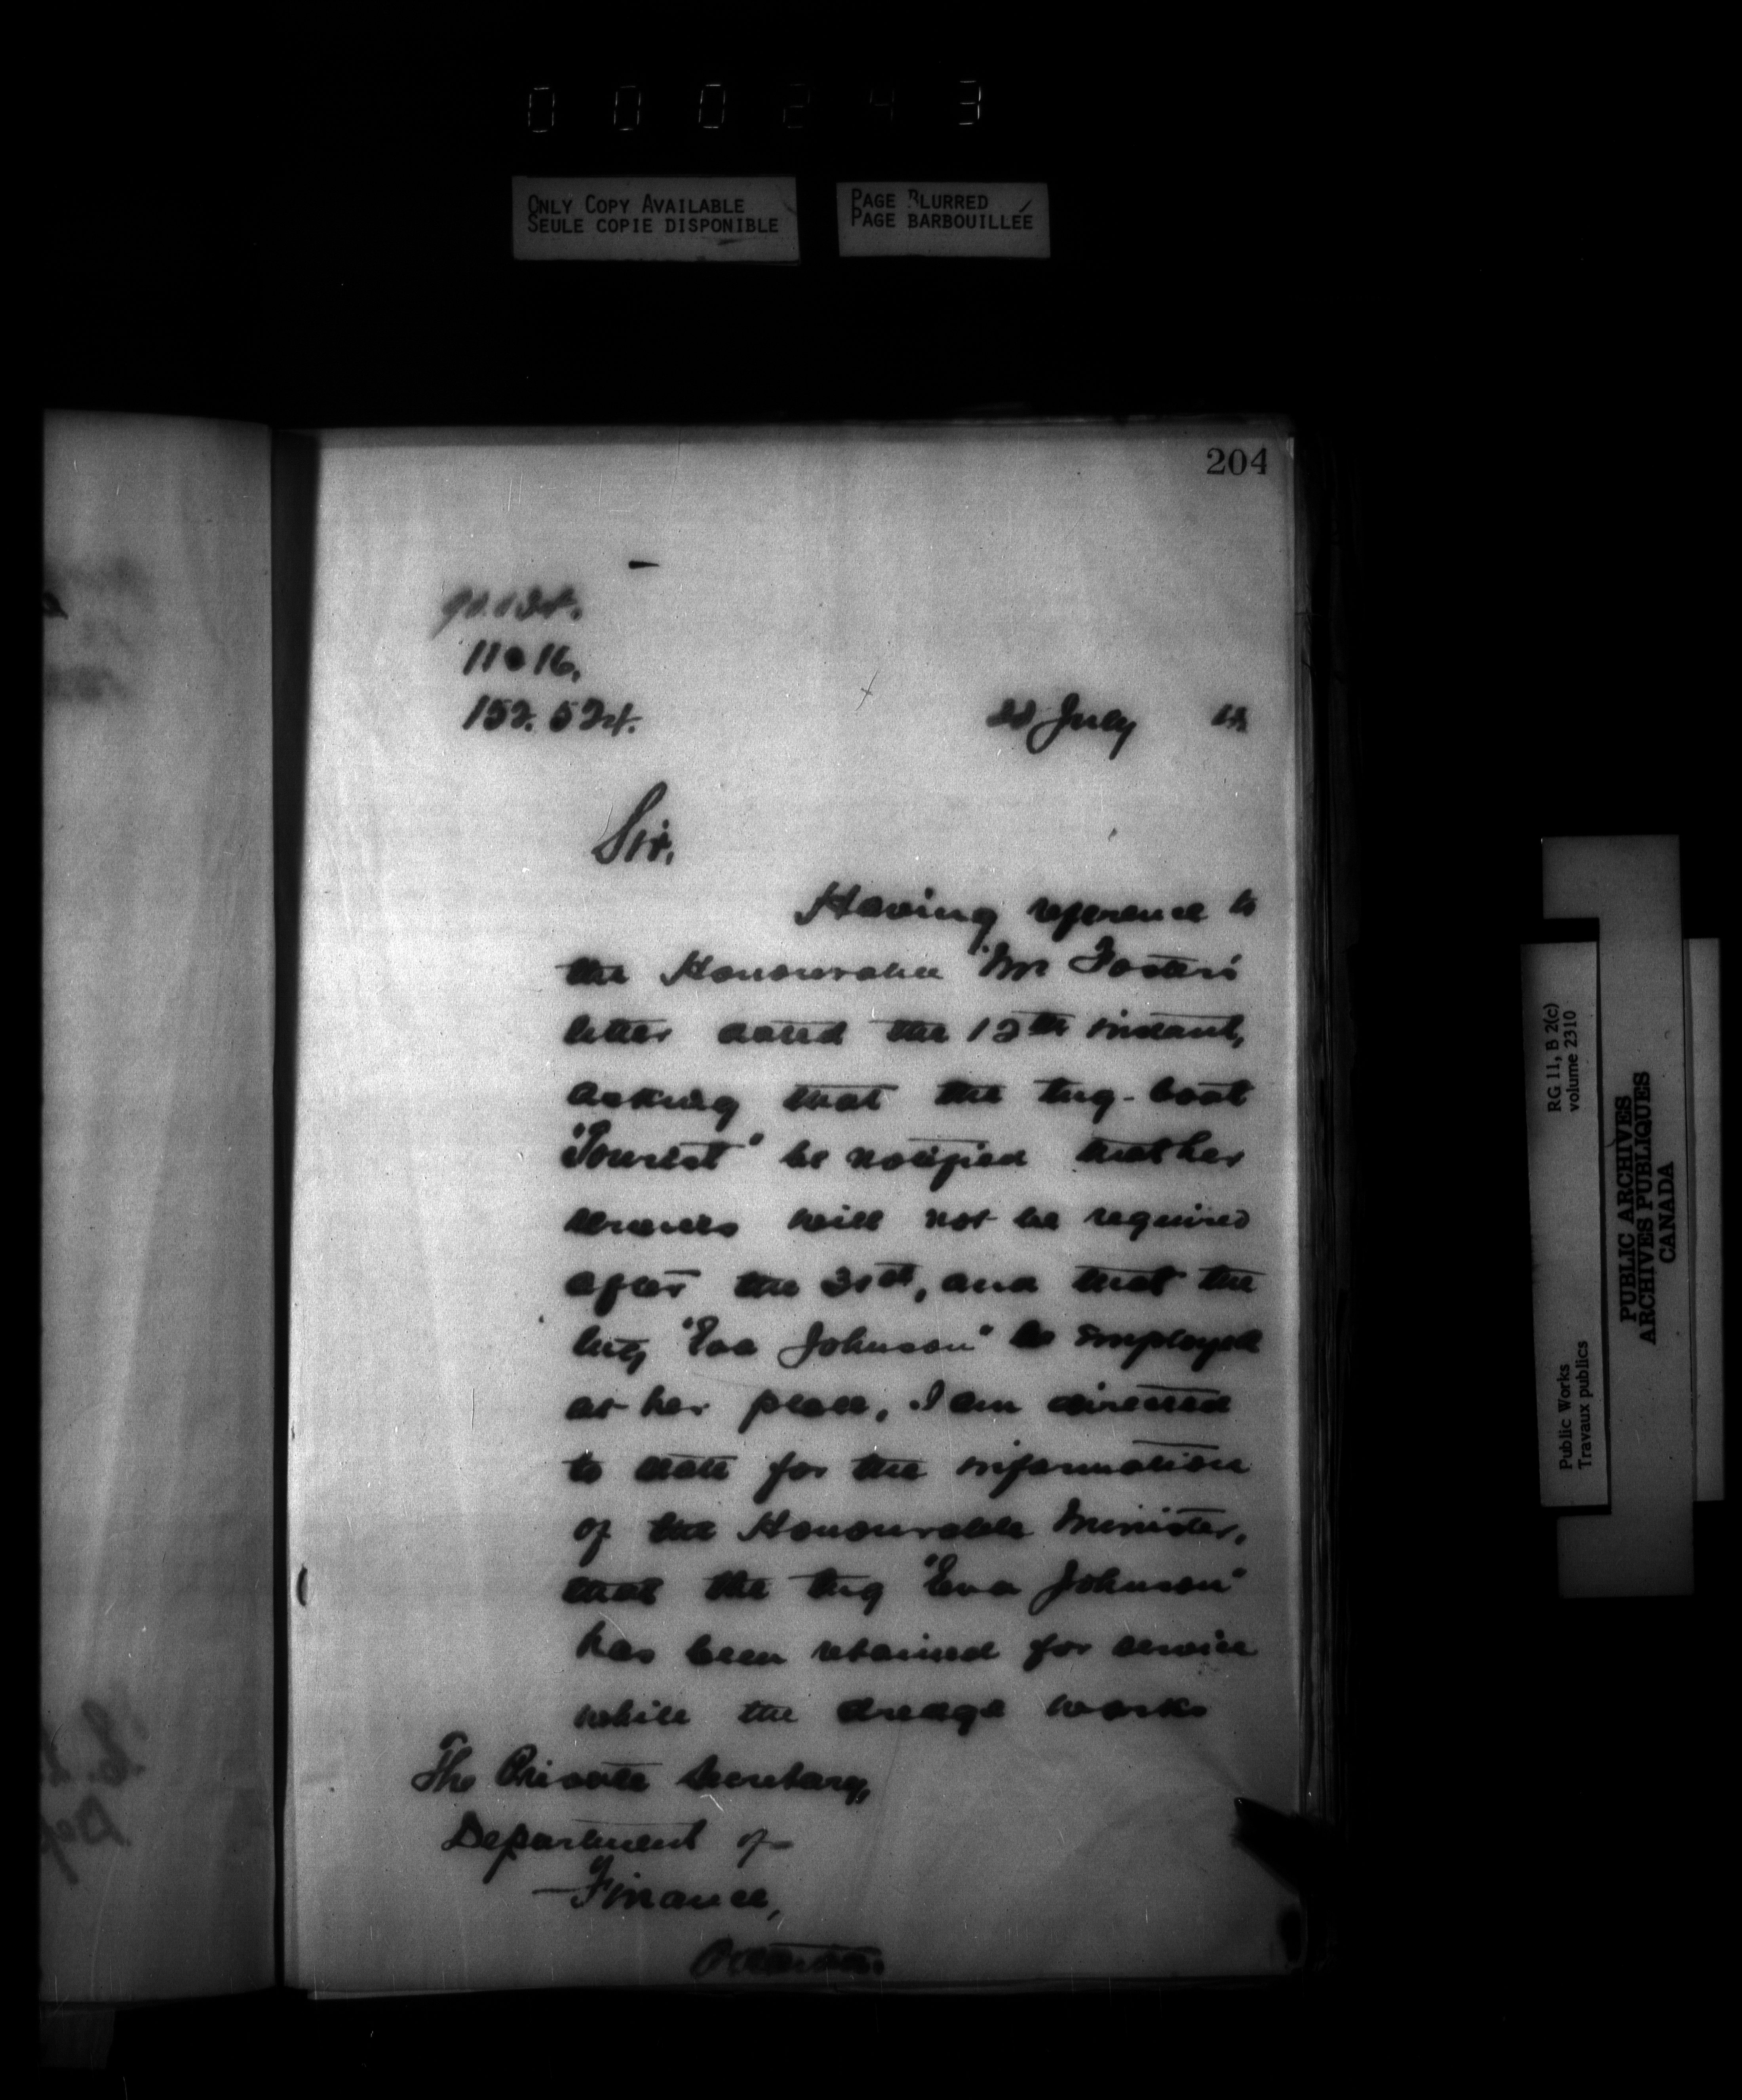 000243
ONLY COPY AVAILABLE
SEULE COPIE DISPONIBLE
PAGE BLURRED
PAGE BARBOUILLÉE
204
11016,
152.524.
22 July
Sir,
Having reference to
the Honourable Mr Foster's
letter dated the 12th instant,
asking that the tug-boat
"Tourist" be notified that her
services will not be required
after the 31st, and that the
tug "Eva Johnson" be employed
at her place, I am directed
to state for the information
of the Honourable Minister,
that the tug "Eva Johnson"
has been retained for service
while the dredge works
The Private Secretary,
Department of
Finance,
Ottawa.
RG 11, B 2(c)
volume 2310
Public Works
Travaux publics
PUBLIC ARCHIVES
ARCHIVES PUBLIQUES
CANADA